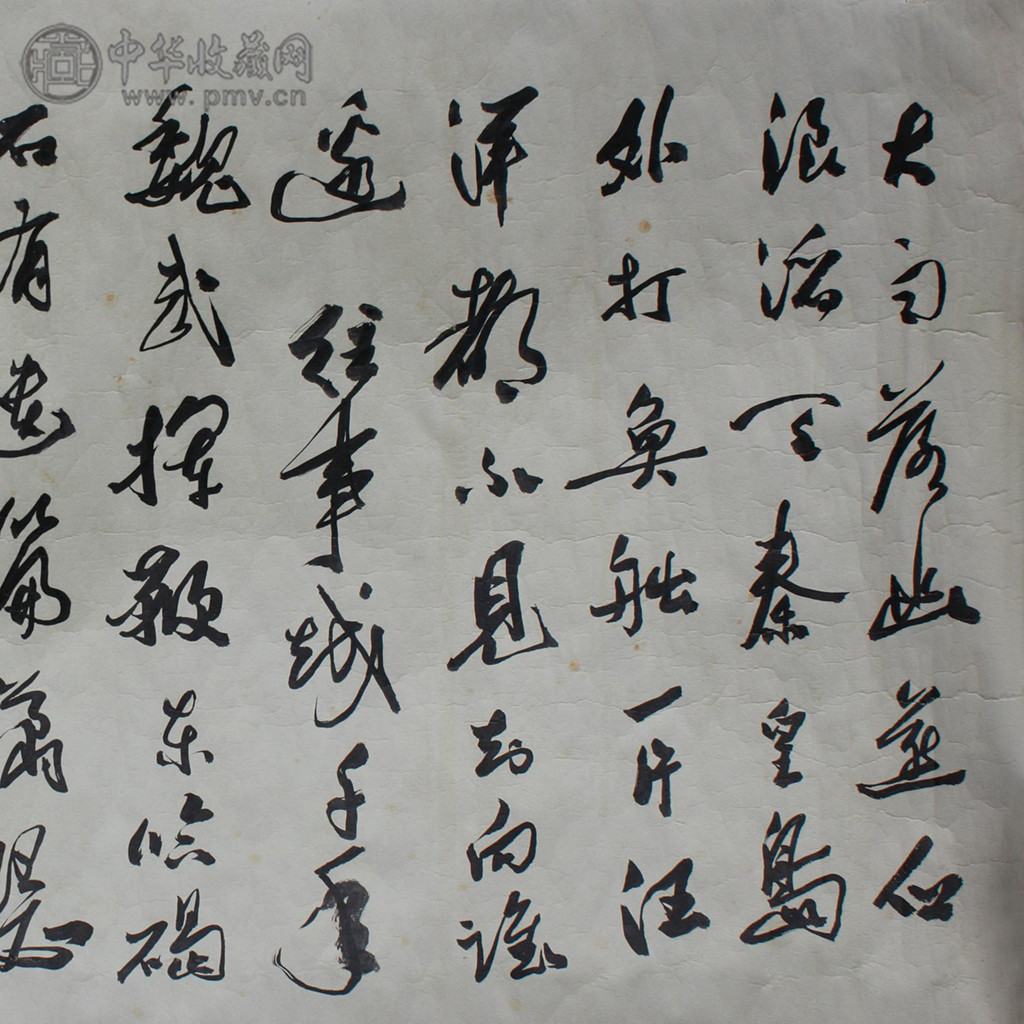 中华收藏网
www.pmv.cn
大雨落幽燕白
浪滔天秦皇島
外打魚船一片汪
洋都不見知向谁
邊往事越千年
魏武挥鞭东临碣
石有遗篇萧瑟